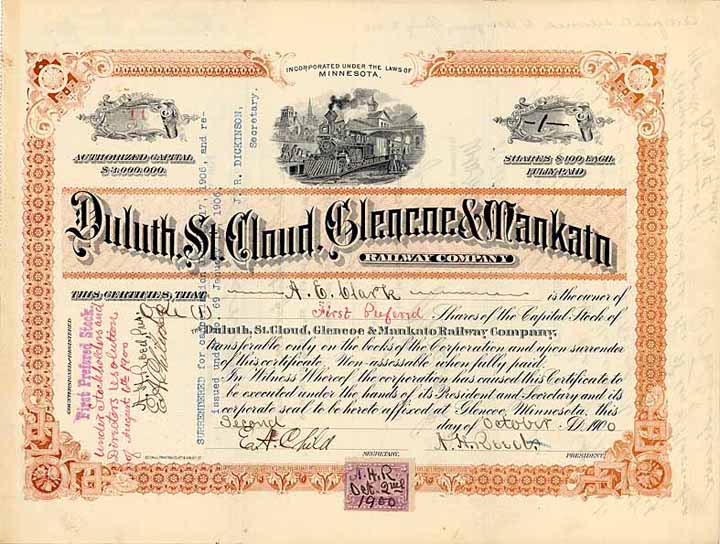 INCORPORATED UNDER THE LAWS OF
MINNESOTA.
11
AUTHORIZED CAPITAL
$3,000,000.
-1-
SHARES $100 EACH
FULL PAID
Duluth, St. Cloud, Glencoe & Mankato
RAILWAY COMPANY
THIS CERTIFIES THAT A. E. Clark is the owner of
One (1) First Prefered Shares of the Capital Stock of
THE Duluth, St. Cloud, Glencoe & Mankato Railway Company,
transferable only on the books of the Corporation and upon surrender
of this certificate. Non-assessable when fully paid.
In Witness Whereof the corporation has caused this Certificate to
be executed under the hands of its President and Secretary and its
corporate seal to be hereto affixed at Glencoe, Minnesota, this
Second day of October A.D. 1900
E. A. Child
SECRETARY.
A. H. Reed
PRESIDENT.
A. H. R
Oct. 2nd
1900
First Preferred Stock,
under stockholders and
Directors resolution
of August 1900
SURRENDERED for 27, 1906, and re-
issued under 69 1906.
J. R. DICKINSON,
Secretary.